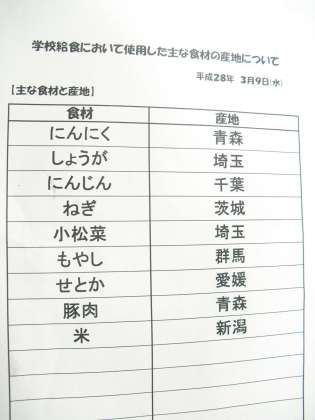 学校給食において使用した主な食材の産地について
平成28年 3月9日(水)
【主な食材と産地】
食材 産地
にんにく 青森
しょうが 埼玉
にんじん 千葉
ねぎ 茨城
小松菜 埼玉
もやし 群馬
せとか 愛媛
豚肉 青森
米 新潟